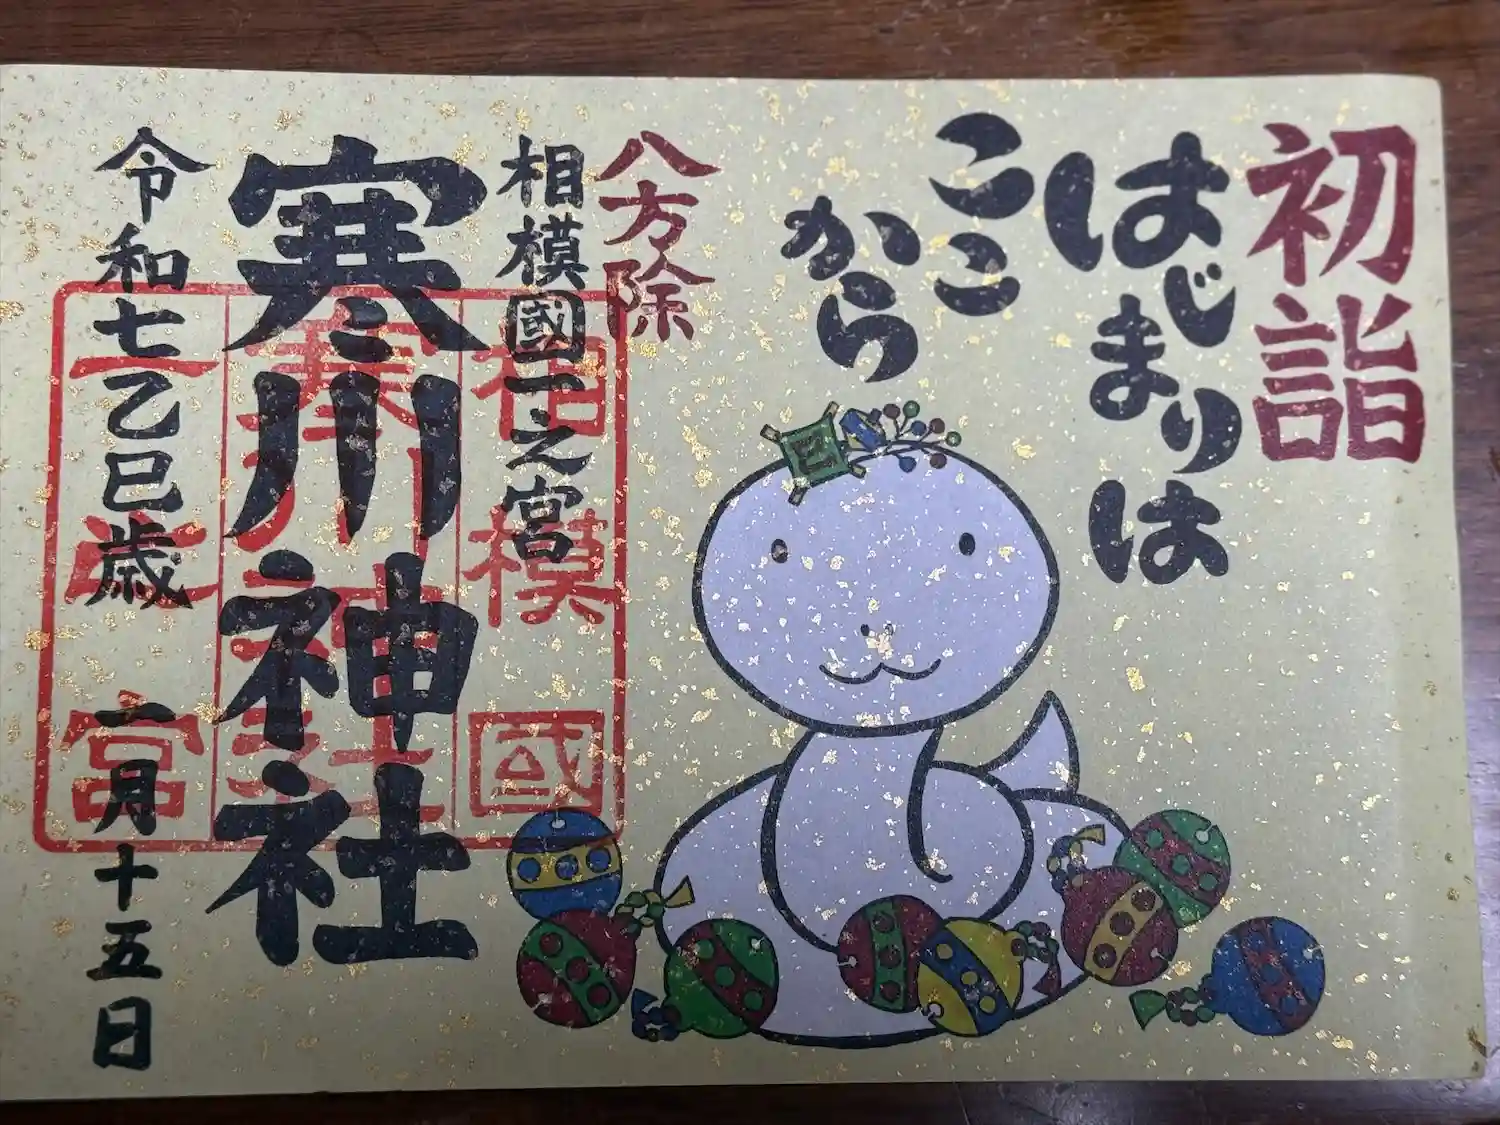 初詣
はじまりは
ここ
から
巳
八方除
相模國一之宮
寒川神社
令和七乙巳歳 二月十五日
相模國
寒川神社
一之宮